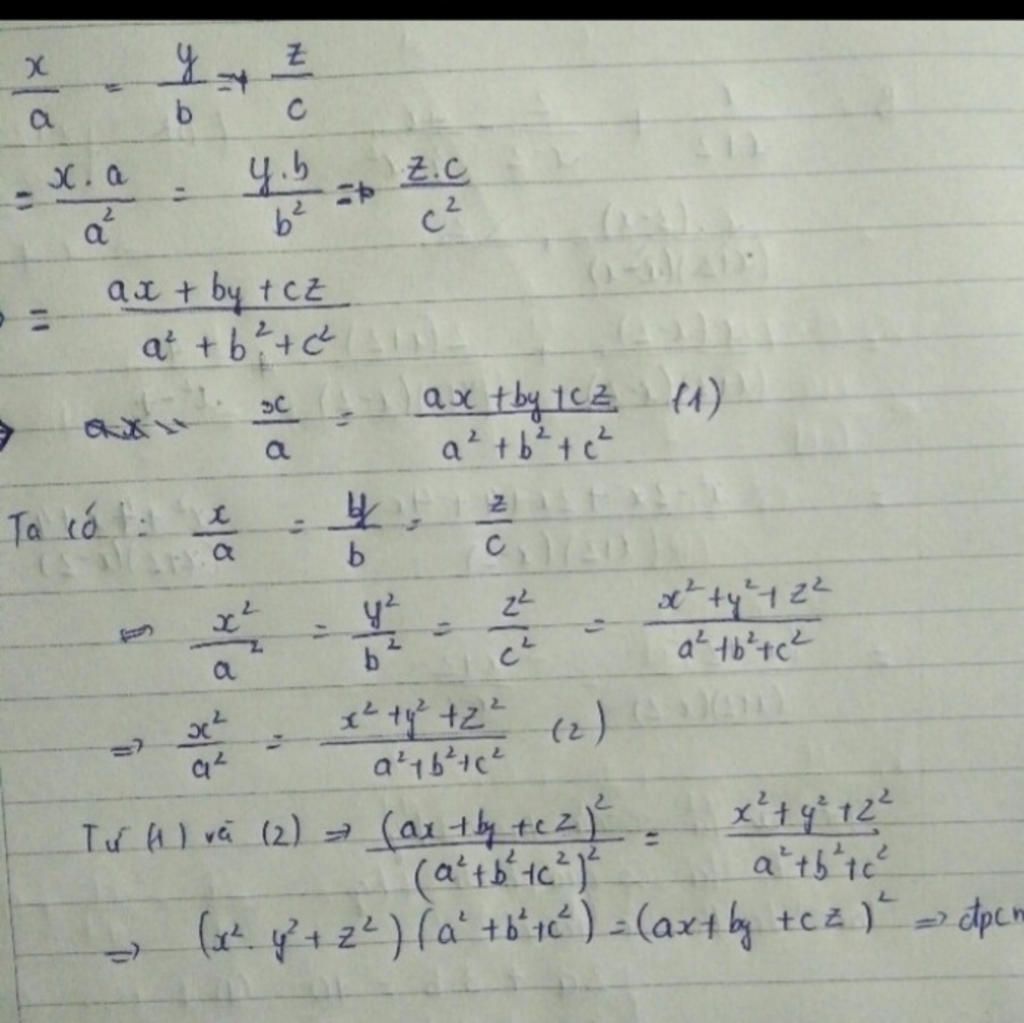 x/a = y/b = z/c
= x.a/a² = y.b/b² = z.c/c²
= (ax + by + cz)/(a² + b² + c²)
x/a = (ax + by + cz)/(a² + b² + c²) (1)
Ta có: x/a = y/b = z/c
⇔ x²/a² = y²/b² = z²/c² = (x² + y² + z²)/(a² + b² + c²)
⇒ x²/a² = (x² + y² + z²)/(a² + b² + c²) (2)
Từ (1) và (2) ⇒ (ax + by + cz)²/(a² + b² + c²)² = (x² + y² + z²)/(a² + b² + c²)
⇒ (x². y² + z²)(a² + b² + c²) = (ax + by + cz)² ⇒ đpcm